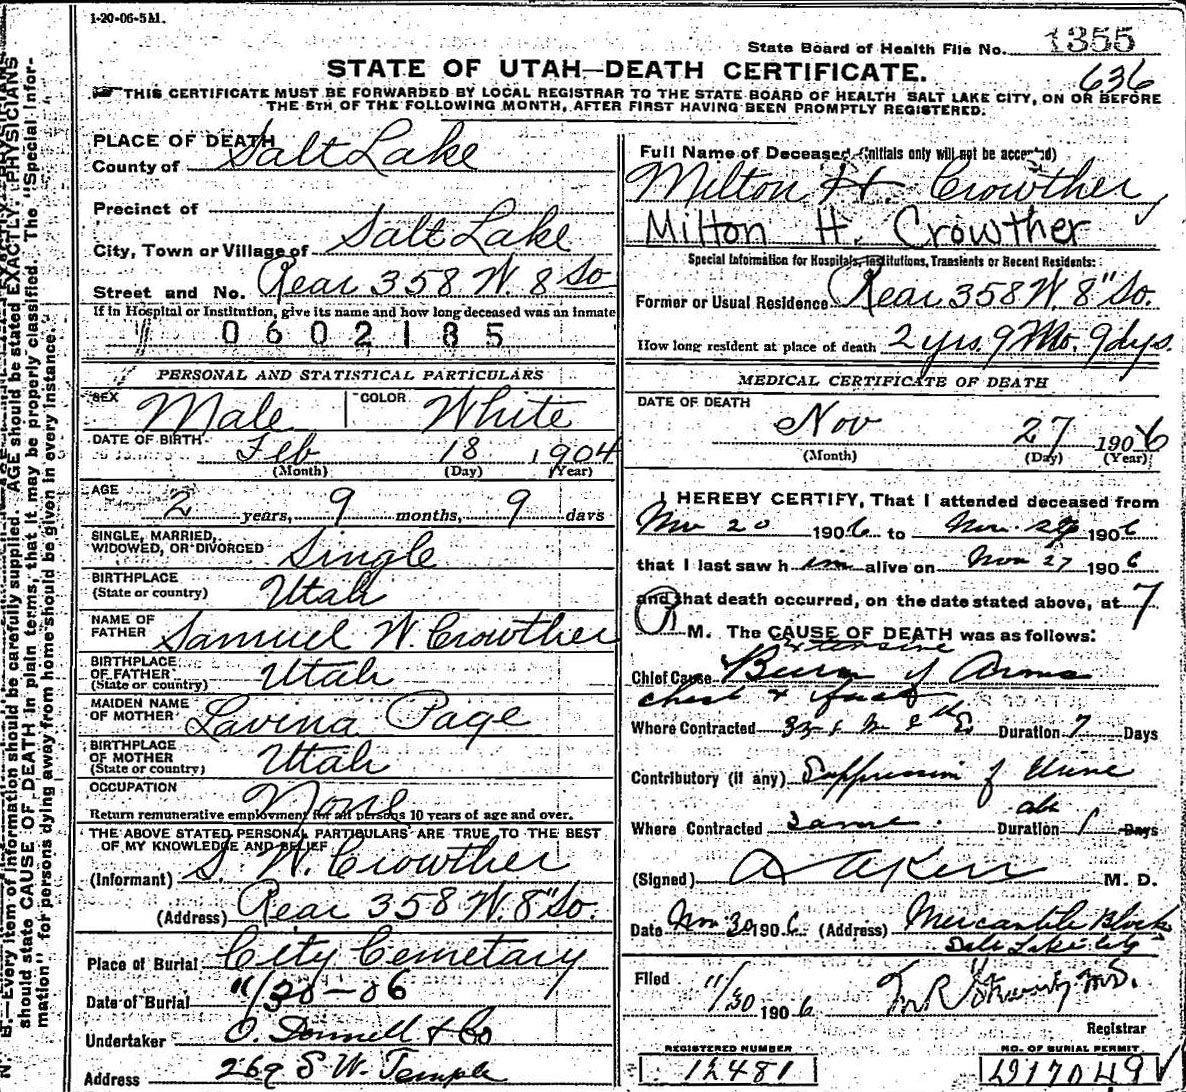 1-20-06-5M.
State Board of Health File No. 1355
STATE OF UTAH—DEATH CERTIFICATE.
636
THIS CERTIFICATE MUST BE FORWARDED BY LOCAL REGISTRAR TO THE STATE BOARD OF HEALTH SALT LAKE CITY, ON OR BEFORE
THE 5TH OF THE FOLLOWING MONTH, AFTER FIRST HAVING BEEN PROMPTLY REGISTERED.
PLACE OF DEATH
County of Salt Lake
Precinct of
City, Town or Village of Salt Lake
Street and No. Rear 358 W. 8 So
If in Hospital or Institution, give its name and how long deceased was an inmate
0602185
PERSONAL AND STATISTICAL PARTICULARS
SEX Male COLOR White
DATE OF BIRTH Feb 18 1904
(Month) (Day) (Year)
AGE 2 years, 9 months, 9 days
SINGLE, MARRIED,
WIDOWED, OR DIVORCED Single
BIRTHPLACE
(State or country) Utah
NAME OF
FATHER Samuel W. Crowther
BIRTHPLACE
OF FATHER
(State or country) Utah
MAIDEN NAME
OF MOTHER Lavina Page
BIRTHPLACE
OF MOTHER
(State or country) Utah
OCCUPATION None
Return remunerative employment for all persons 10 years of age and over.
THE ABOVE STATED PERSONAL PARTICULARS ARE TRUE TO THE BEST
OF MY KNOWLEDGE AND BELIEF
(Informant) S. W. Crowther
(Address) Rear 358 W. 8" So.
Place of Burial City Cemetary
Date of Burial 11/30-06
Undertaker O. Donnell & Co
Address 269 S W. Temple
Full Name of Deceased (Initials only will not be accepted)
Milton H. Crowther
Milton H. Crowther
Special Information for Hospitals, Institutions, Transients or Recent Residents:
Former or Usual Residence Rear 358 W. 8" So.
How long resident at place of death 2 yrs. 9 Mo. 9 dys.
MEDICAL CERTIFICATE OF DEATH
DATE OF DEATH
Nov 27 1906
(Month) (Day) (Year)
I HEREBY CERTIFY, That I attended deceased from
Nov 20 1906 to Nov. 1906
that I last saw him alive on Nov 27 1906
and that death occurred, on the date stated above, at 7
P M. The CAUSE OF DEATH was as follows:
Extensive
Chief Cause Burn of Arms
chest & face
Where Contracted Duration 7 Days
Contributory (if any) Suppression of Urine
Where Contracted Same. Duration 1 Days
(Signed) M. D.
Date Nov 30 1906 (Address) Mercantile Block
Salt Lake City
Filed 11/30 1906
Registrar
REGISTERED NUMBER NO. OF BURIAL PERMIT
12481 D17049
N. B.—Every item of information should be carefully supplied. AGE should be stated EXACTLY. PHYSICIANS
should state CAUSE OF DEATH in plain terms, that it may be properly classified. The "Special Infor-
mation" for persons dying away from home should be given in every instance.